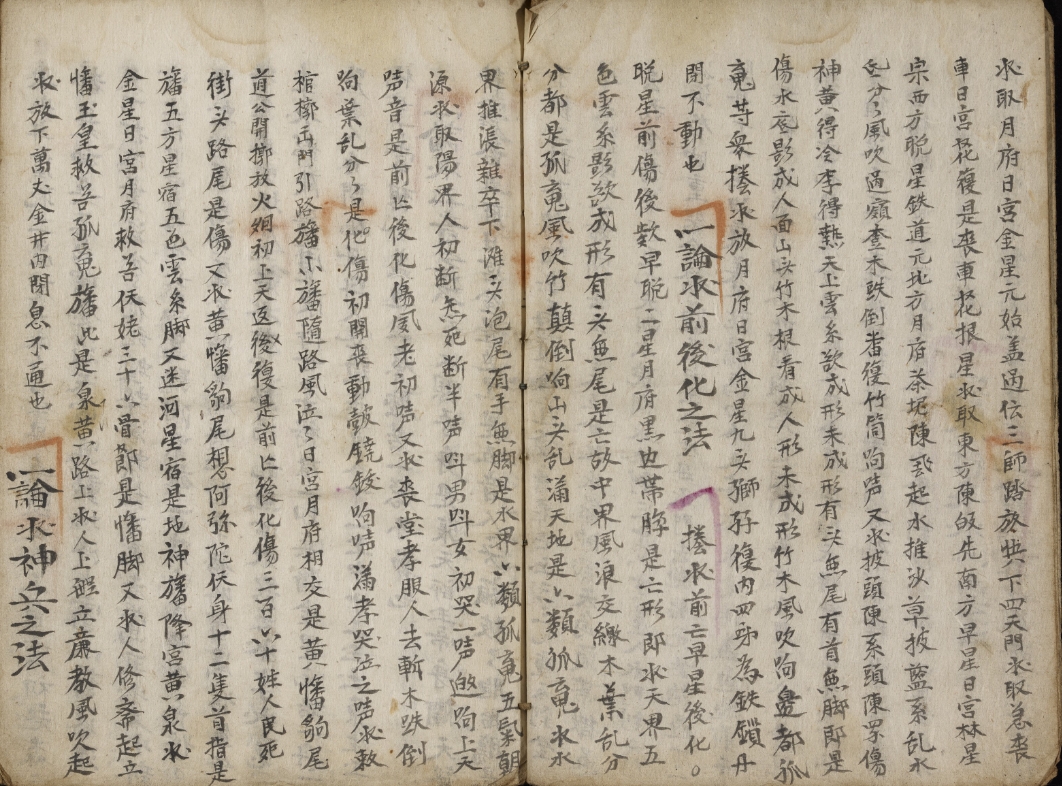 水取月府日宮金星元始盖過伝三師踏放怏下四天門水取急喪
車日宮花復是喪車花根星水取東方陳皈先南方早星日宮林星
宗西方脱星鉄道元北方月府茶坭陳乱起水推沙草披藍系乱水
分分風吹過嶺查木跌倒畨復竹筒响声又水披頭陳系頭陳罗傷
神黄得冷李得熱天上雲系欲成形未成形有头無尾有首無脚即是
傷水底影成人面山头竹木根看成人形未成形竹木風吹响盡都孤
䰟等衆捲水放月府日宮金星九头獅孖復内四冴為鉄鎖丹
閉不動也
一論水前後化之法
捲水前亡早星後化。
脱星前傷後數早脱二星月府黑边帶脖是亡形即水天界五
色雲系影欲成形有头無尾是亡故中界風浪交緣木葉乱分
分都是孤䰟風吹竹顛倒响山头乱滿天地是六類孤䰟水水
界推漲雜卒下滩头泡尾有手無脚是水界六類孤䰟五梁朝
源水取陽界人初断氣死断半声叫男叫女初哭一声邀响上天
声音是前亡後化傷風老初声又水喪堂孝服人去斬木跌倒
响葉乱分分是化傷初開喪動皷鐃鈸响声滿孝哭泣之声水敕
棺槨出門引路旛小旛隨路風泣泣日宮月府相交是黄幡豹尾
道公開槨放火烟初上天返後復是前亡後化傷三百六十姓人民死
街头路尾是傷又水黄幡豹尾想阿弥陀伕身十二隻首指是
旛五方星宿五色雲系脚又迷河星宿是地神旛降宮黄泉水
金星日宮月府救苦伕姥三十六骨節是幡脚又水人修斋起立
幡玉皇救苦孤䰟旛此是泉黄路上水人上䃥立應教風吹起
水放下萬丈金井内閉息不通也
一論水神兵之法